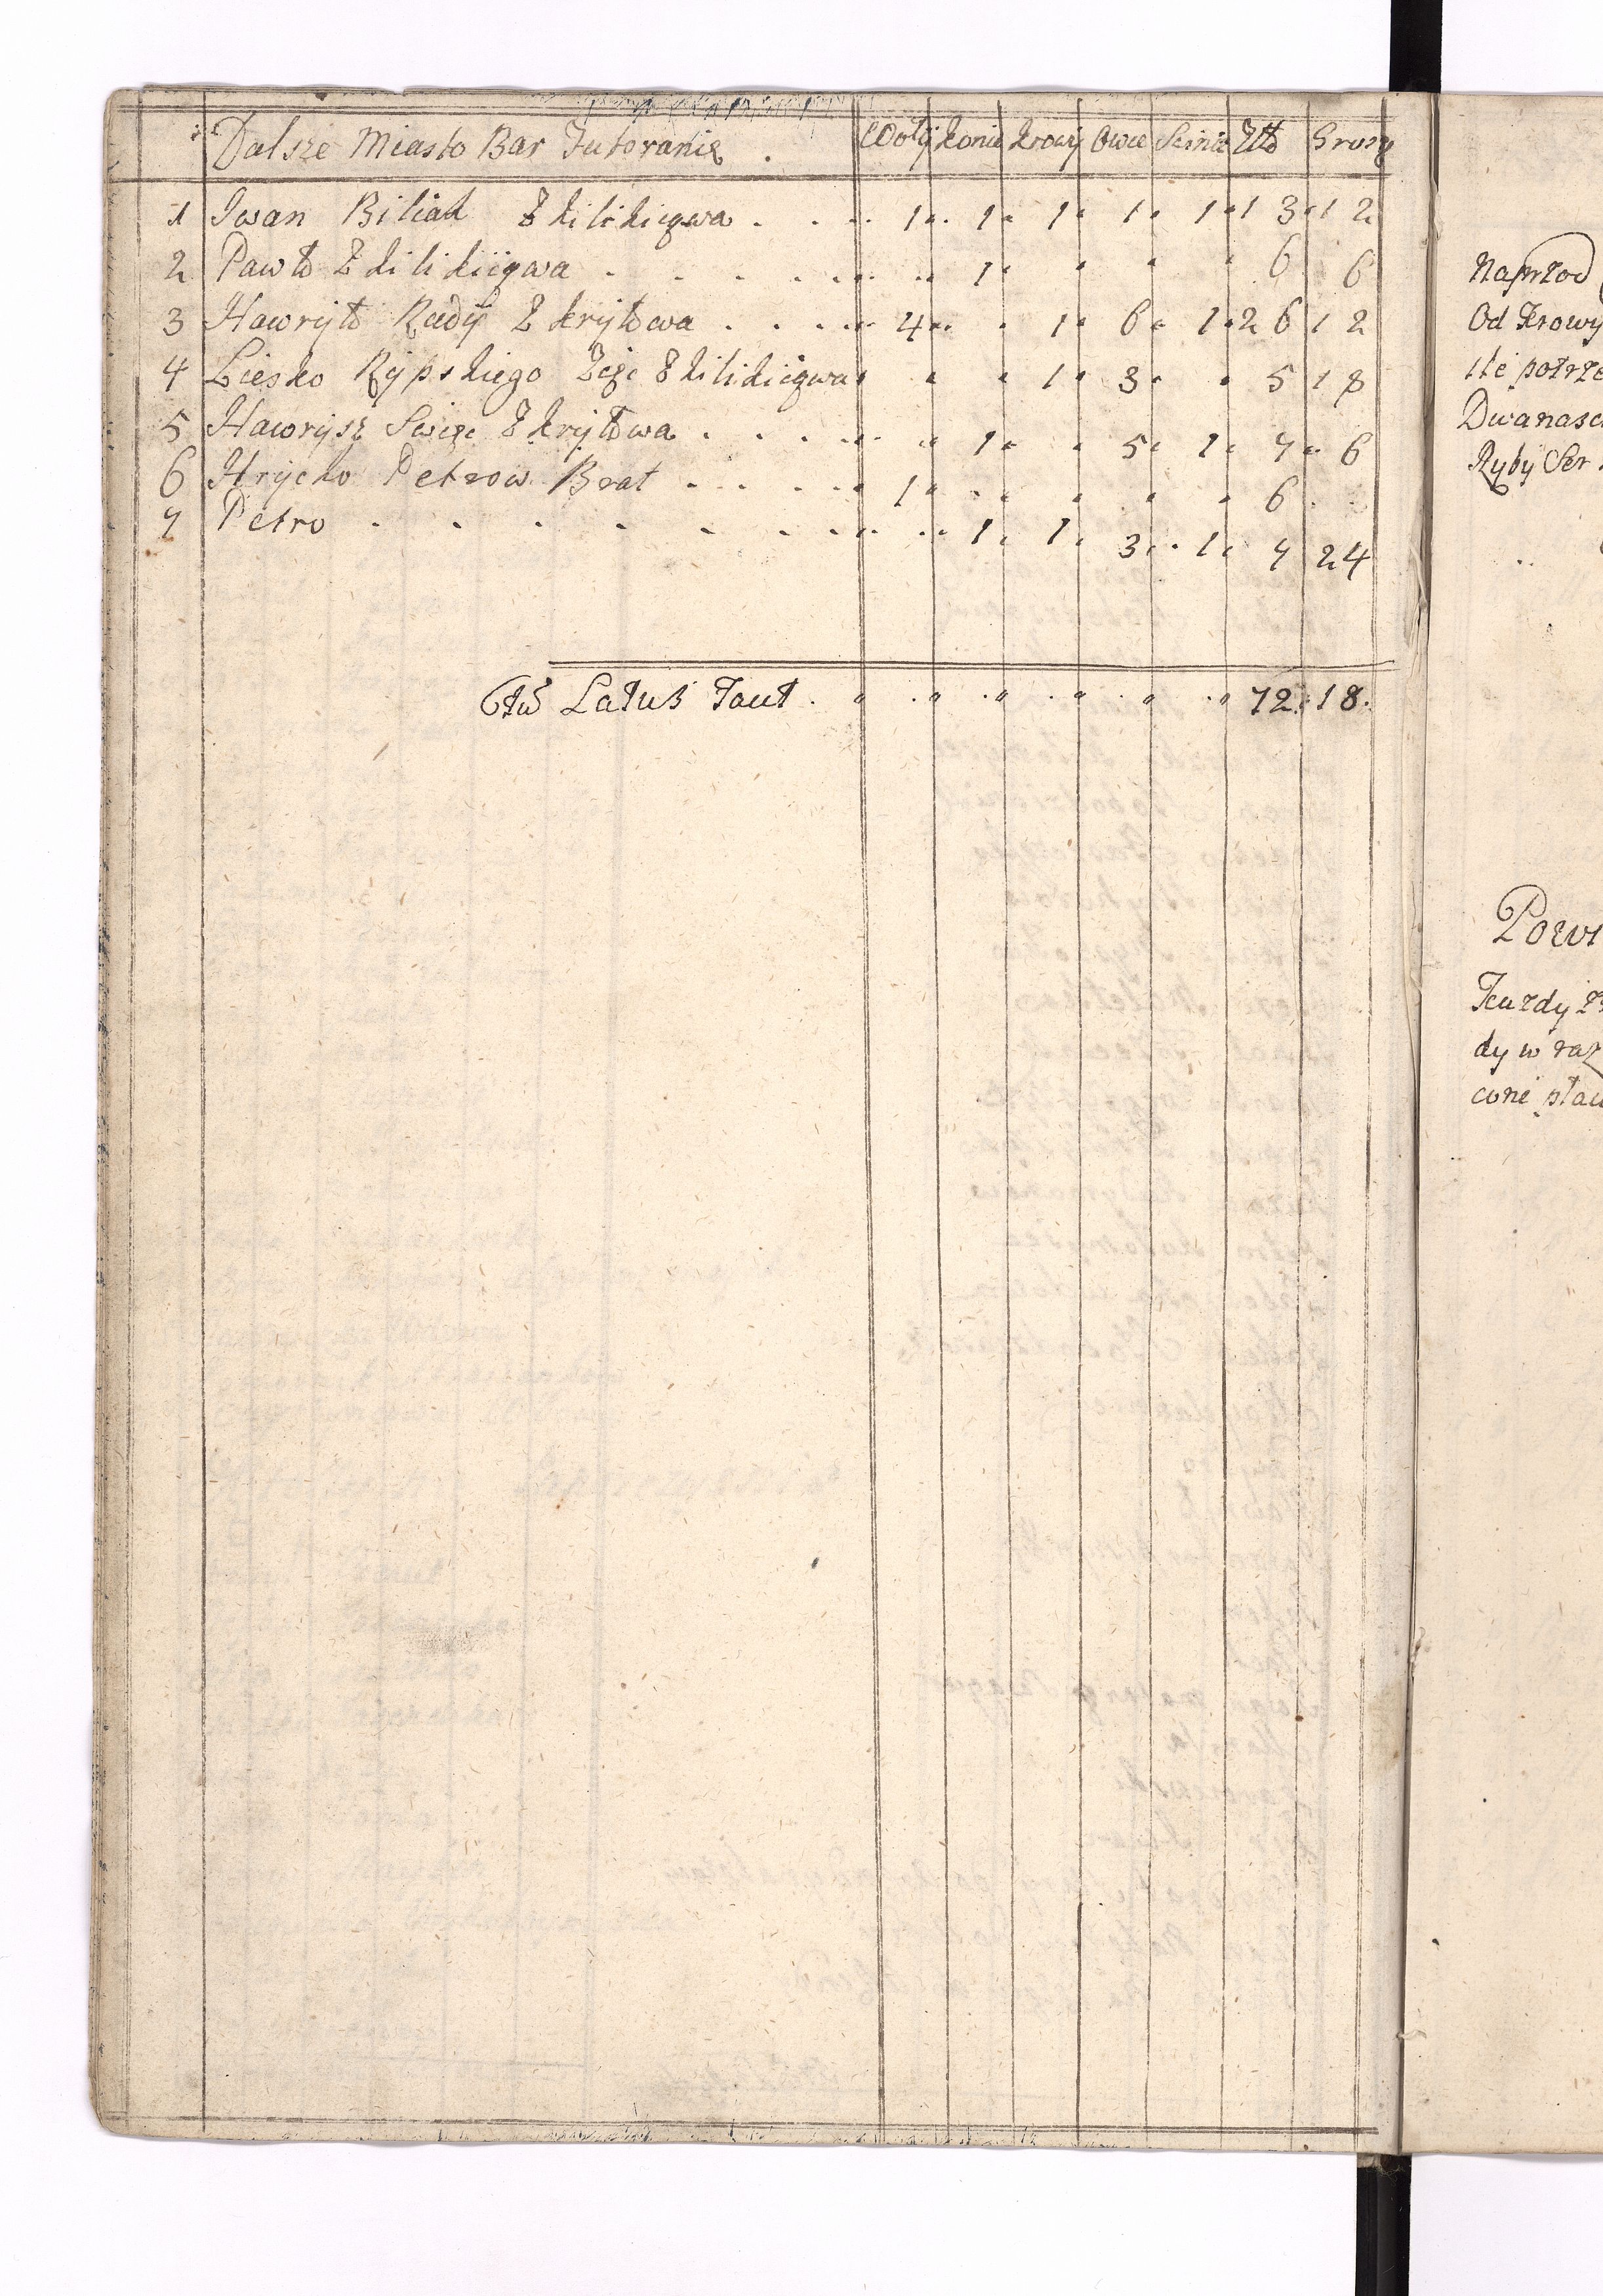 Dalsze Miasto Bar Futoranie . Woły konie krowy Owce Swinie Złł Groszy
1 Iwan Biliak Z kilikiiowa . . . 1 1 1 1 1 13 12
2 Pawło Z kilikiiowa . . . 1 6 6
3 Hawryło Rudy Z kryłowa . . . 4 1 6 1 26 12
4 Liesko Rypskiego Zięć Z kilikiiowa 1 3 5 18
5 Hawrysz Zwięc Z kryłowa . . . 1 5 1 7 6
6 Hrycko Petrow Brat . . . 1 6
7 Petro . . . 1 1 3 1 7 24
Latus Facit . 72 18.
Naprzod
Od Krowy
ile potrze
Dwanasc
Ryby Ser
Powi
Każdy
dy w raz
cone płac